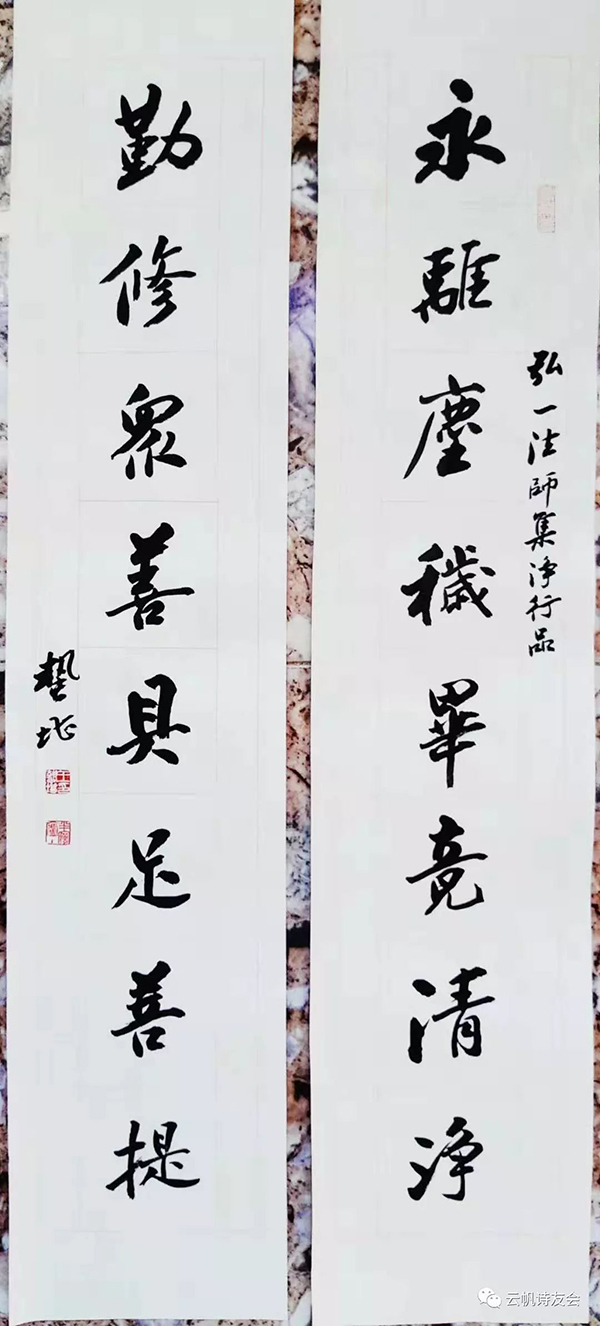 永離塵穢畢竟清淨
弘一法師集淨行品
勤修眾善具足菩提
云帆诗友会